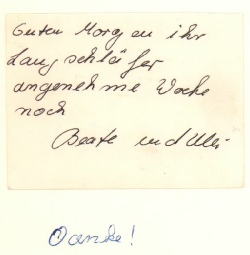 Guten Morgen ihr
Langschläfer
angenehme Woche
noch
Beate und Uli
Danke!